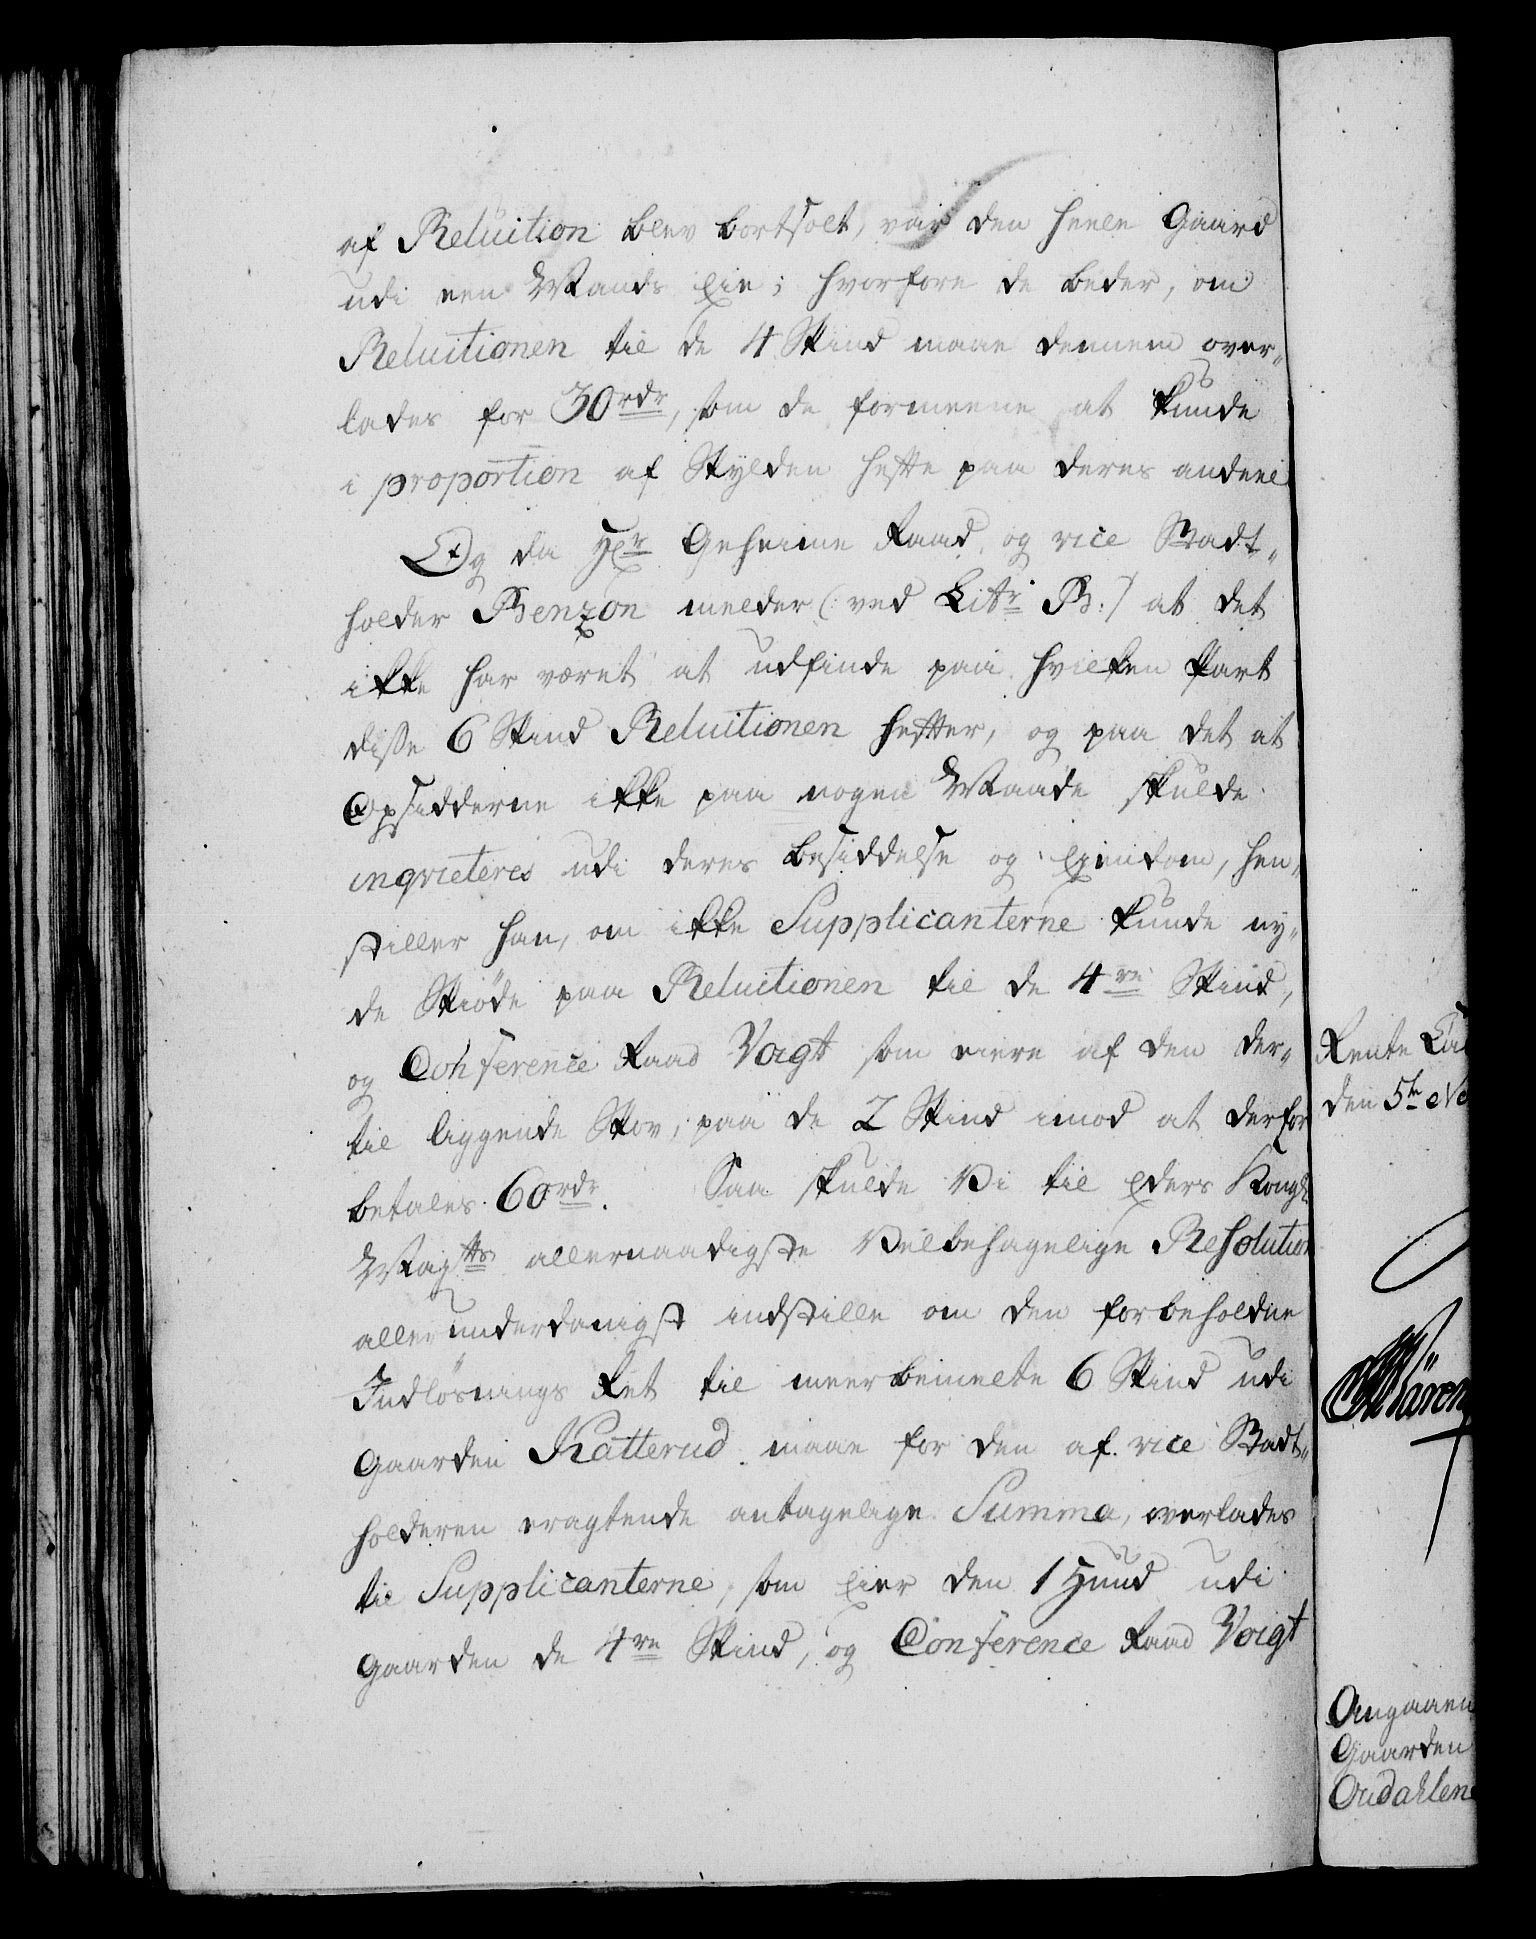 af Reluition blev bortsolt, var den heele Gaard
udi een Mands Eie; hvorfore de beder, om
Reluitionen til de 4 Skind maae dennem over„
lades for 30 rdr, som de formeene at kunde
i proportion af Skylden hefte paa deres andeel
Og da Hr Geheime Raad, og vice Stadt„
holder Benzon melder (: ved Litr B:) at det
ikke har været at udfinde paa hvilken Part
disse 6 Skind Reluitionen hefter, og paa det at
Opsidderne ikke paa nogen Maade skulde
inqvieteres udi deres besiddelse og Eiendom, hen„
stiller han, om ikke Supplicanterne kunde ny„
de Skiøde paa Reluitionen til de 4re Skind,
og Conference Raad Voigt som eiere af den der„
til liggende Skov, paa de 2 Skind imod at derfor
betales 60 rdr. Saa skulde Vi til Eders Kongl.
Mayts allernaadigste Velbehagelige Resolution
allerunderdanigst indstille om den forbeholdne
Indløsnings Ret til meerbemelte 6 Skind udi
Gaarden Katterud maae for den af vice Stadt„
holderen eragtende antagelige Summa, overlades
til Supplicanterne, som Eier den 1 Huud udi
Gaarden de 4re Skind, og Conference Raad Voigt
Rente Ca
den 5te No
Angaaen
Gaarden